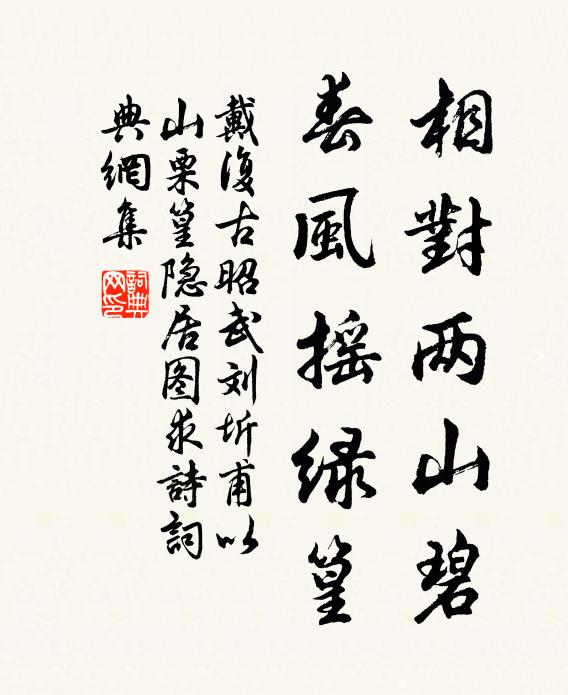 相對两山碧
春風摇緑篁
戴復古昭武刘圻甫以
山栗篁隐居图求詩詞
典網集
詞典
网印